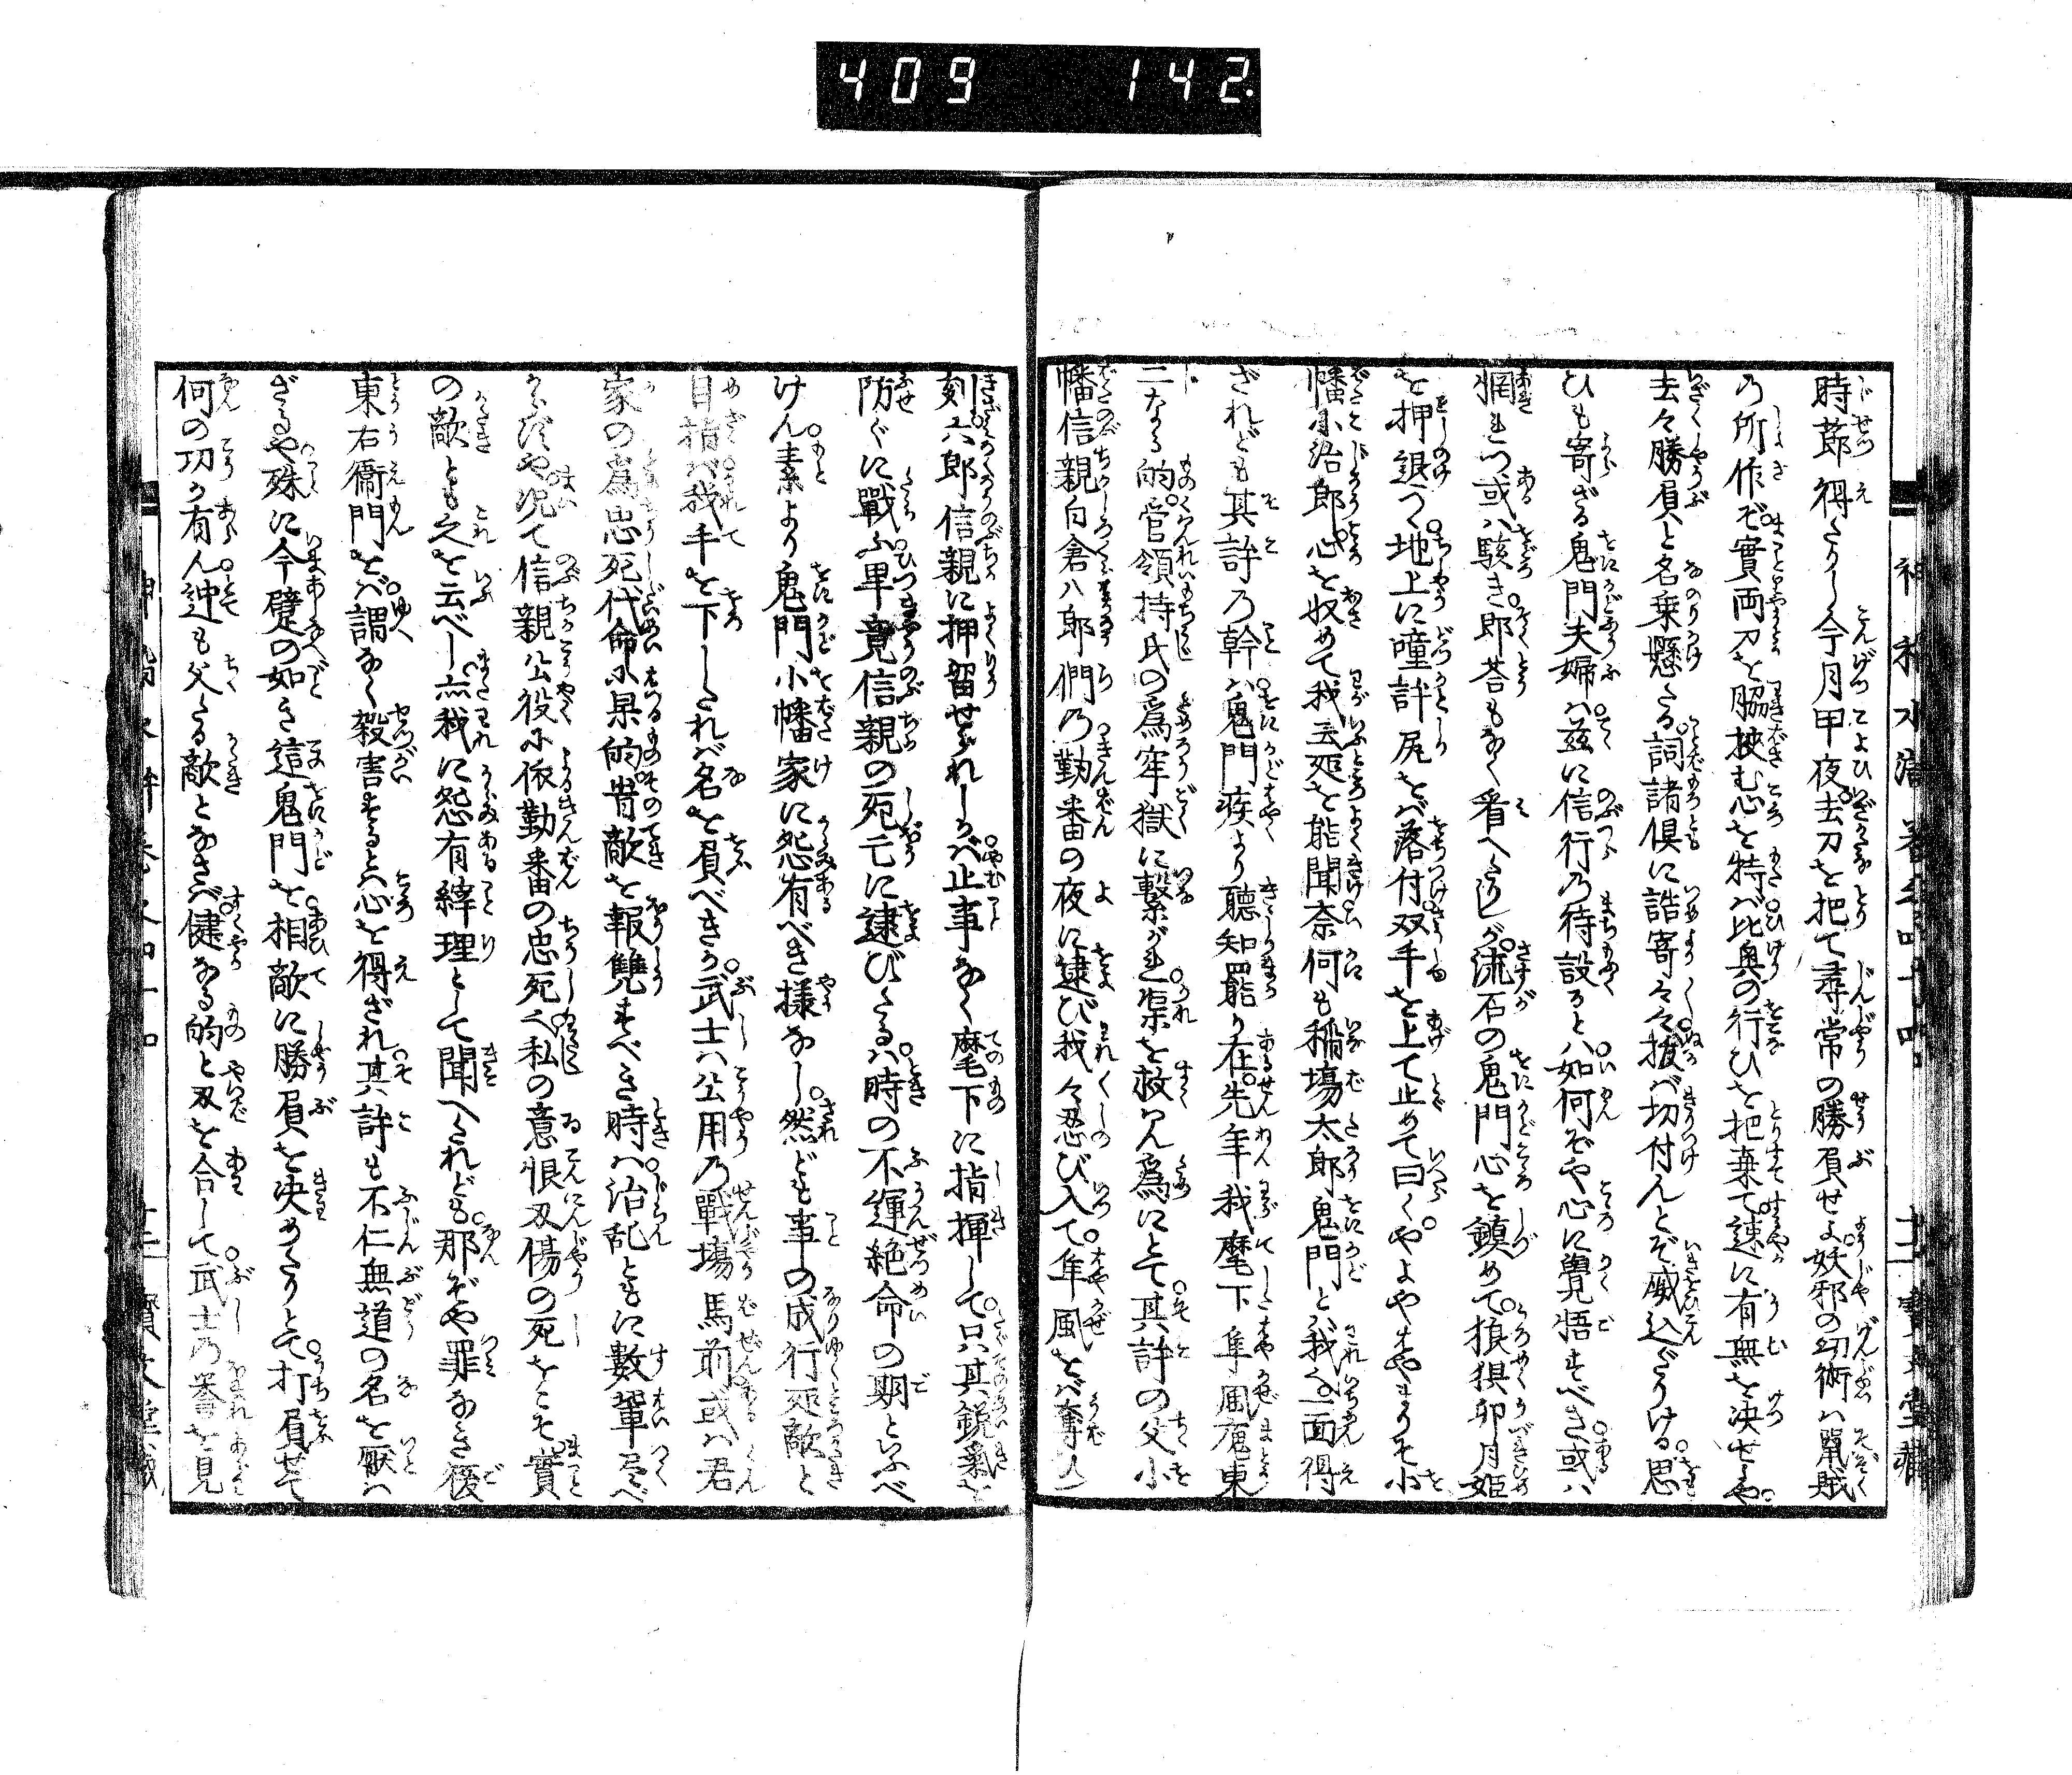 409 142.
時節得たりし今月甲夜去刀を把て尋常の勝負せよ妖邪の幻術ハ鼠賊
の所作ぞ實両刀を脇挾む心を特バ比興の行ひを把棄て速に有無を决せよや。
去々勝負と名乗懸たる詞諸倶に詰寄々々拔バ切付んとぞ威込だりける思
ひも寄ざる鬼門夫婦ハ茲に信行の待設うとハ如何ぞや心に覺悟すべき或ハ
惘れつ或ハ駭き郎荅もなく看へたりしが流石の鬼門心を鎮めて狼狽卯月姫
を押退つく地上に噇計尻をバ落付双手を上て止めて曰くやよやはやまりそ小
幡小治郎心を收めて我云処を能聞奈何も稲塲太郎鬼門とバ我一面得
ざれども其許の幹ハ鬼門疾より聽知罷り在先年我麾下隼風魔東
二なる的管領持氏の爲牢獄に繋がれ渠を救ん爲にとて其許の父小
幡信親白倉八郎們の勤番の夜に逮び我々忍び入て隼風をバ奪ひ
刻六郎信親に押畱せられしかバ止事なく麾下に指揮して只其鋭氣を
防ぐに戰ふ畢竟信親の死亡に逮びたるハ時の不運絶命の期といふべ
けん素より鬼門小幡家に怨有べき様なし然ども事の成行処敵と
目指バ我手を下したれバ名を負べきか武士ハ公用の戰塲馬前或ハ君
家の爲忠死代命に果的昔敵を報讐すべき時ハ治乱ともに數輩尽べ
からずや况て信親公役に依勤番の忠死私の意恨刄傷の死をこそ實
の敵とも之を云べし点我に怨有緯理として聞へたれども那ぞや罪なき後
東右衞門をバ謂なく殺害するとハ心を得ざれ其許も不仁無道の名を厭ハ
ざるや殊に今躄の如き這鬼門を相敵に勝負を决めたりとて打負せて
何の功か有ん迚も父たる敵となさバ健なる的と刄を合して武士の誉を見